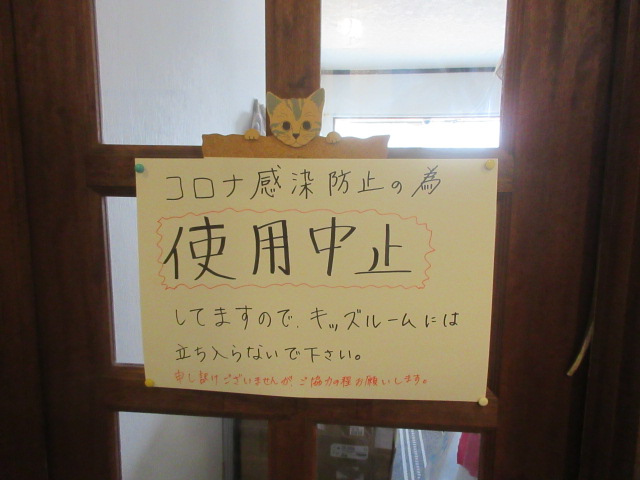 コロナ感染防止の為
使用中止
してますので、キッズルームには
立ち入らないで下さい。
申し訳けございませんが ご協力の程お願いします。